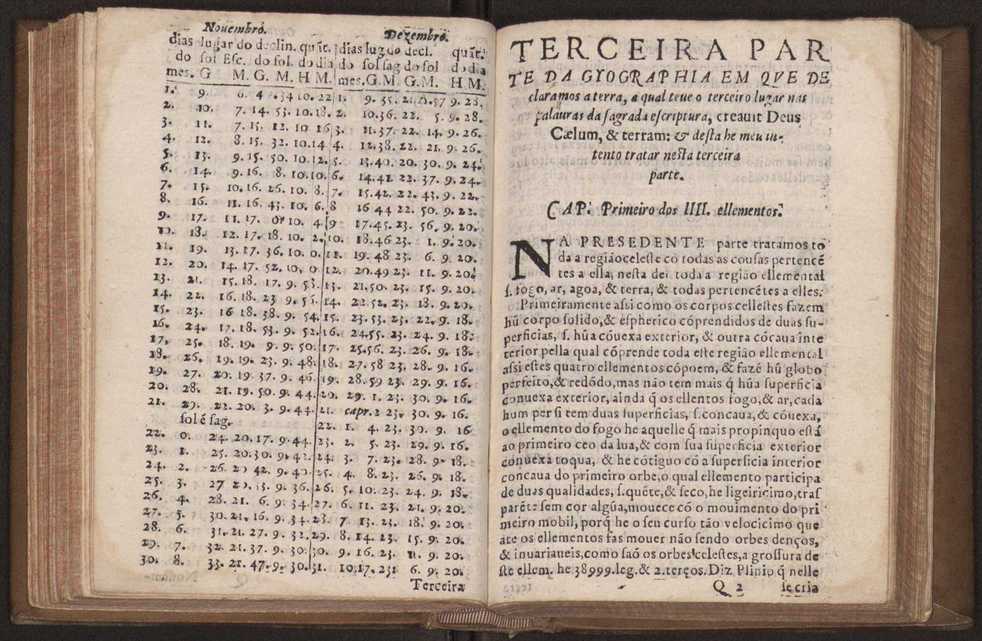 Nouembro.
Dezembro.
dias lugar do declin. quãt.
do sol Esc. do sol. do dia
mes. G M. G. M. H M.
dias lug do decl. quãt.
do sol sag do sol do dia
mes. G.M. G.M. H M.
2. 10. 7. 14. 53. 10. 18. 2. 10.36. 22. 5. 9. 28.
3. 11. 7. 15. 12. 10 16 3. 11.37. 22. 14. 9. 26.
4. 12. 8. 15. 32. 10. 14 4. 12.38. 22. 21. 9. 26.
5. 13. 9. 15. 50. 10. 12. 5. 13.40. 20. 30. 9. 24.
6. 14. 9. 16. 8. 10. 10. 6. 14.41 22. 37. 9. 24.
7. 15. 10. 16. 26. 10. 8. 7. 15.42. 22. 43. 9. 22.
8. 16. 11. 16. 43. 10. 6. 8 16 44 22. 50. 9. 22.
9. 17. 11. 17. 0. 10. 4. 9 17.45. 23. 56. 9. 20.
10. 18. 12. 17. 18. 10. 2. 10. 18.46 23. 1. 9. 20.
11. 19. 13. 17. 36. 10. 0. 11. 19. 48 23. 6. 9. 20.
12. 20. 14. 17. 52. 10. 0 12. 20.49 23. 11. 9. 20.
13. 21. 15. 18. 17. 9. 13. 21.50. 23. 15. 9. 20.
14. 22. 16. 18. 23 9. 14. 22.52. 23. 18. 9. 20.
15. 23. 16 18. 38. 9. 54. 15. 23.53. 23. 22. 9. 18.
16. 24. 17. 18. 53. 9. 52. 16. 24.55. 23. 24. 9. 18.
17. 25. 18. 19. 9. 9. 50. 17. 25.56. 23. 26. 9. 18.
18. 26. 19. 19. 23. 9. 48. 18. 27.58 23. 28. 9. 16.
19. 27. 20. 19. 37. 9. 46. 19. 28.59 23. 29. 9. 16.
20. 28. 21. 19. 50. 9. 44. 20. 29. 1. 23. 30. 9. 16.
21. 29. 22. 20. 3. 9. 44. 21. capr. 2 23. 30. 9. 16.
sol é sag. 22. 1. 4. 23. 30. 9. 16
22. 0. 24. 20. 17. 9. 44. 23. 2. 5. 23. 29. 9. 16.
23. 1. 25. 20. 30. 9. 42. 24. 3. 7. 23. 28. 9. 18.
24. 2. 26. 20 42. 9. 40. 25. 4. 8. 23. 26. 9. 18.
25. 3. 9. 36. 26. 5. 10. 23. 24. 9. 18.
26. 4. 28. 21. 6. 9. 34. 27. 6. 11. 23. 21. 9. 20.
27. 5. 30. 21. 16. 9. 34. 28. 7 13. 23. 18. 9. 20.
28. 6. 31. 21. 27. 9. 32. 29. 8. 14. 23. 15. 9. 20.
29. 7. 32. 21. 37. 9. 30. 30. 9. 16. 23. 11. 9. 20.
30. 8. 33. 21. 47. 9. 30. 31. 10. 17. 23. 6. 9. 20.
Terceira
TERCEIRA PAR
TE DA GYOGRAPHIA EM QVE DE
claramos a terra, a qual teue o terceiro lugar nas
palauras da sagrada escriptura, creauit Deus
Cælum, & terram: & desta he meu in-
tento tratar nesta terceira
parte.
CAP. Primeiro dos IIII. ellementos.
NA PRESEDENTE parte tratamos to
da a região celeste cõ todas as cousas pertencẽ
tes a ella, nesta dei toda a região ellemental
s. fogo, ar, agoa, & terra, & todas pertencẽtes a elles.
Primeiramente assi como os corpos cellestes fazem
hũ corpo solido, & espherico cõprendidos de duas su-
perficias, s. hũa cõuexa exterior, & outra cõcaua inte
terior pella qual cõprende toda este região ellemental
assi estes quatro ellementos cõpoem, & fazẽ hũ globo
perfeito, & redõdo, mas não tem mais q̃ hũa superficia
conuexa exterior, ainda q̃ os ellentos fogo, & ar, cada
hum per si tem duas superficias, s. concaua, & cõuexa,
o ellemento do fogo he aquelle q̃ mais propinquo está
ao primeiro ceo da lua, & com sua superficia exterior
conuexa toqua, & he cõtiguo cõ a superficia interior
concaua do primeiro orbe, o qual ellemento participa
de duas qualidades, s. quẽte, & seco, he ligeiricimo, tras
parẽte sem cor algũa, mouece cõ o mouimento do pri
meiro mobil, porq̃ he o seu curso tão velocicimo que
ate os ellementos fas mouer não sendo orbes denços,
& inuariaueis, como saõ os orbes celestes, a grossura de
ste ellem. he 38999. leg. & 2. terços. Diz Plinio q̃ nelle
Q 2 se cria